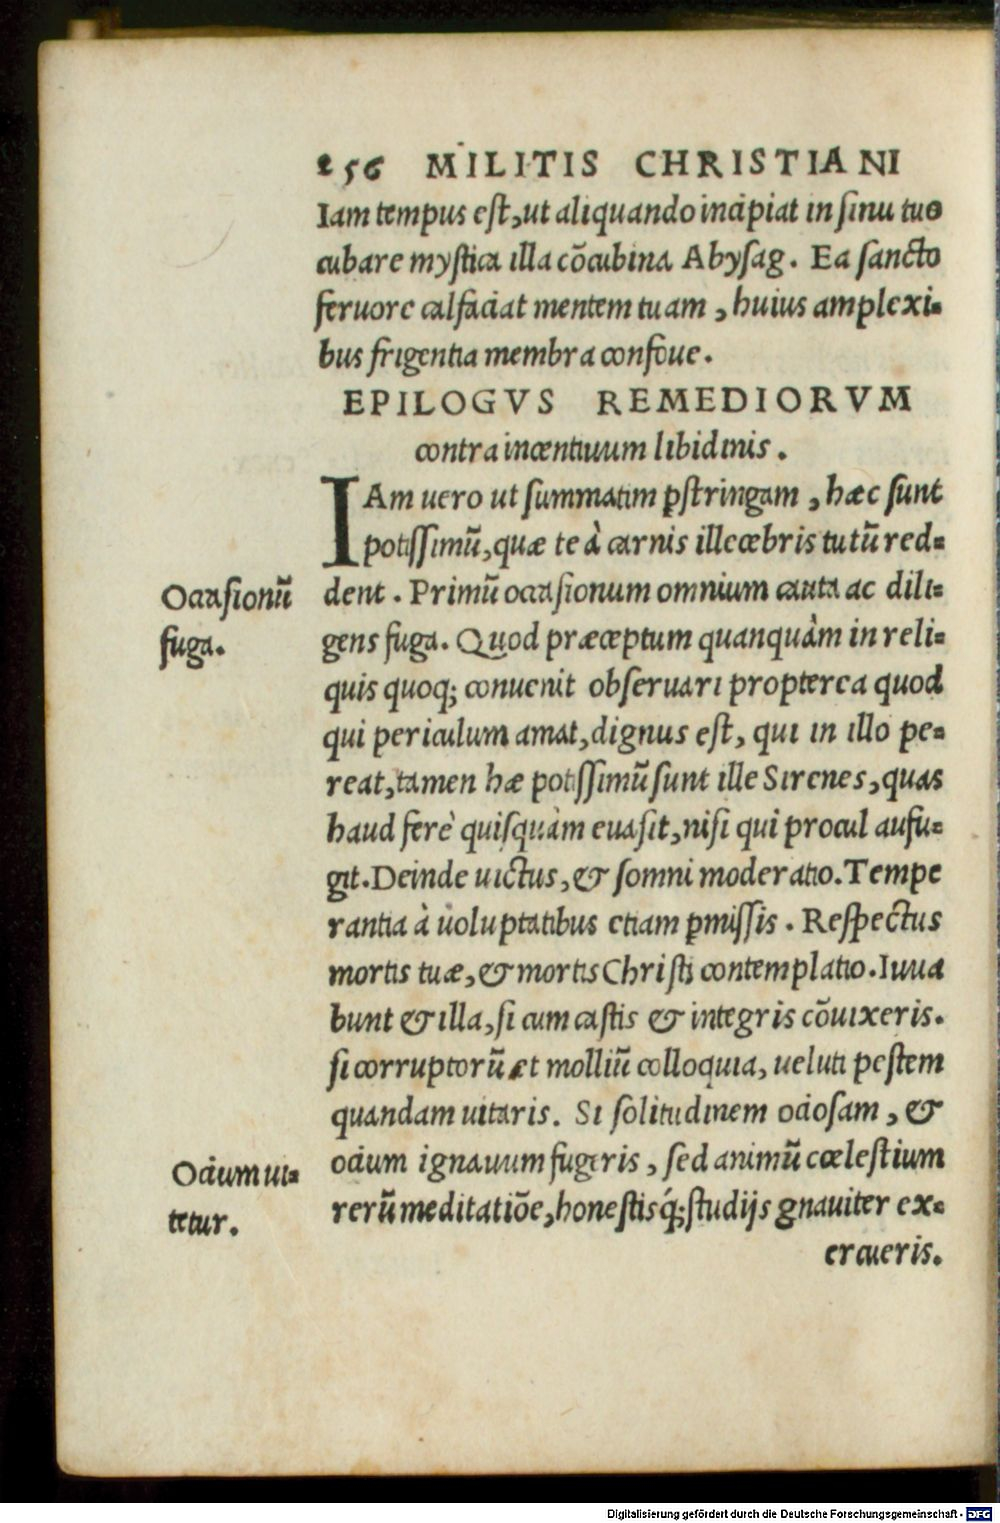 256 MILITIS CHRISTIANI
Iam tempus est, ut aliquando incipiat in sinu tuo
cubare mystica illa cõcubina Abysag. Ea sancto
feruore calfaciat mentem tuam, huius amplexi-
bus frigentia membra confoue.
EPILOGVS REMEDIORVM
contra incentiuum libidinis.
IAm uero ut summatim ꝑstringam, hæc sunt
potissimũ, quæ te à carnis illecebris tutũ red-
Occasionũ
fuga.
dent. Primũ occasionum omnium cauta ac dili-
gens fuga. Quod præceptum quanquàm in reli-
quis quoq; conuenit obseruari propterea quod
qui periculum amat, dignus est, qui in illo pe-
reat, tamen hæ potissimũ sunt ille Sirenes, quas
haud ferè quisquàm euasit, nisi qui procul aufu-
git. Deinde uictus, & somni moderatio. Tempe
rantia à uoluptatibus etiam ꝑmissis. Respectus
mortis tuæ, & mortis Christi contemplatio. Iuua
bunt & illa, si cum castis & integris cõuixeris.
si corruptorũ et molliũ colloquia, ueluti pestem
quandam uitaris. Si solitudinem ociosam, &
Ocium ui-
tetur.
ocium ignauum fugeris, sed animũ cœlestium
rerũ meditatiõe, honestisq́; studijs gnauiter ex-
ercueris.
Digitalisierung gefördert durch die Deutsche Forschungsgemeinschaft - DFG